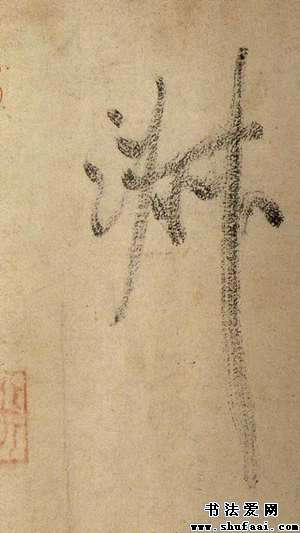 淋
书法爱网
www.shufaai.com